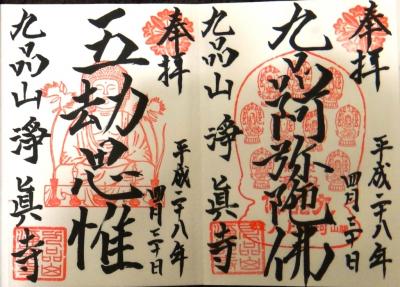 奉拝
九品阿弥陀佛
平成二十八年
四月三十日
九品山 淨眞寺
奉拝
五劫思惟
平成二十八年
四月三十日
九品山 淨眞寺